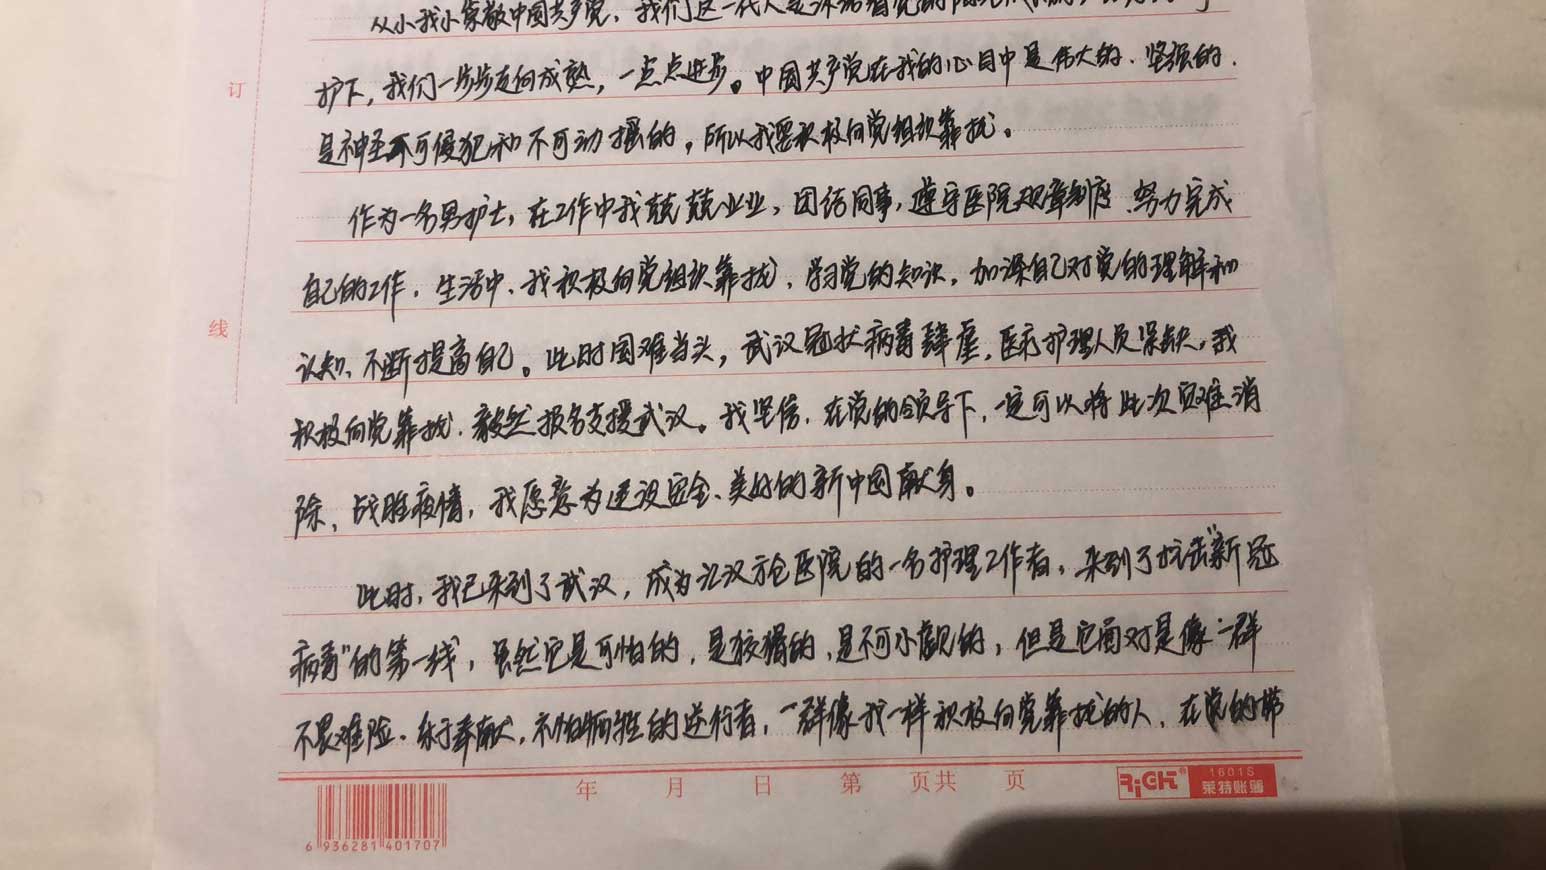 从小我小崇敬中国共产党，我们这一代人是沐浴着党的阳光
护下，我们一步步走向成熟，一点点进步。中国共产党在我的心目中是伟大的、坚强的、
是神圣不可侵犯和不可动摇的，所以我要积极向党组织靠拢。
作为一名男护士，在工作中我兢兢业业，团结同事，遵守医院规章制度、努力完成
自己的工作，生活中、我积极向党组织靠拢，学习党的知识，加深自己对党的理解和
认知、不断提高自己。此时困难当头，武汉冠状病毒肆虐，医疗护理人员紧缺，我
积极向党靠拢、毅然报名支援武汉。我坚信，在党的领导下，一定可以将此次灾难消
除、战胜疫情，我愿意为建设安全、美好的新中国献身。
此时，我已来到了武汉，成为江汉方仓医院的一名护理工作者，来到了抗击"新冠
病毒"的第一线，虽然它是可怕的，是狡猾的，是不可小觑的，但是它面对是像一群
不畏难险、乐于奉献，不怕牺牲的逆行者，一群像我一样积极向党靠拢的人，在党的带
订
线
年 月 日 第 页共 页
RiGHT® 1601S
莱特账簿
6 936281 401707